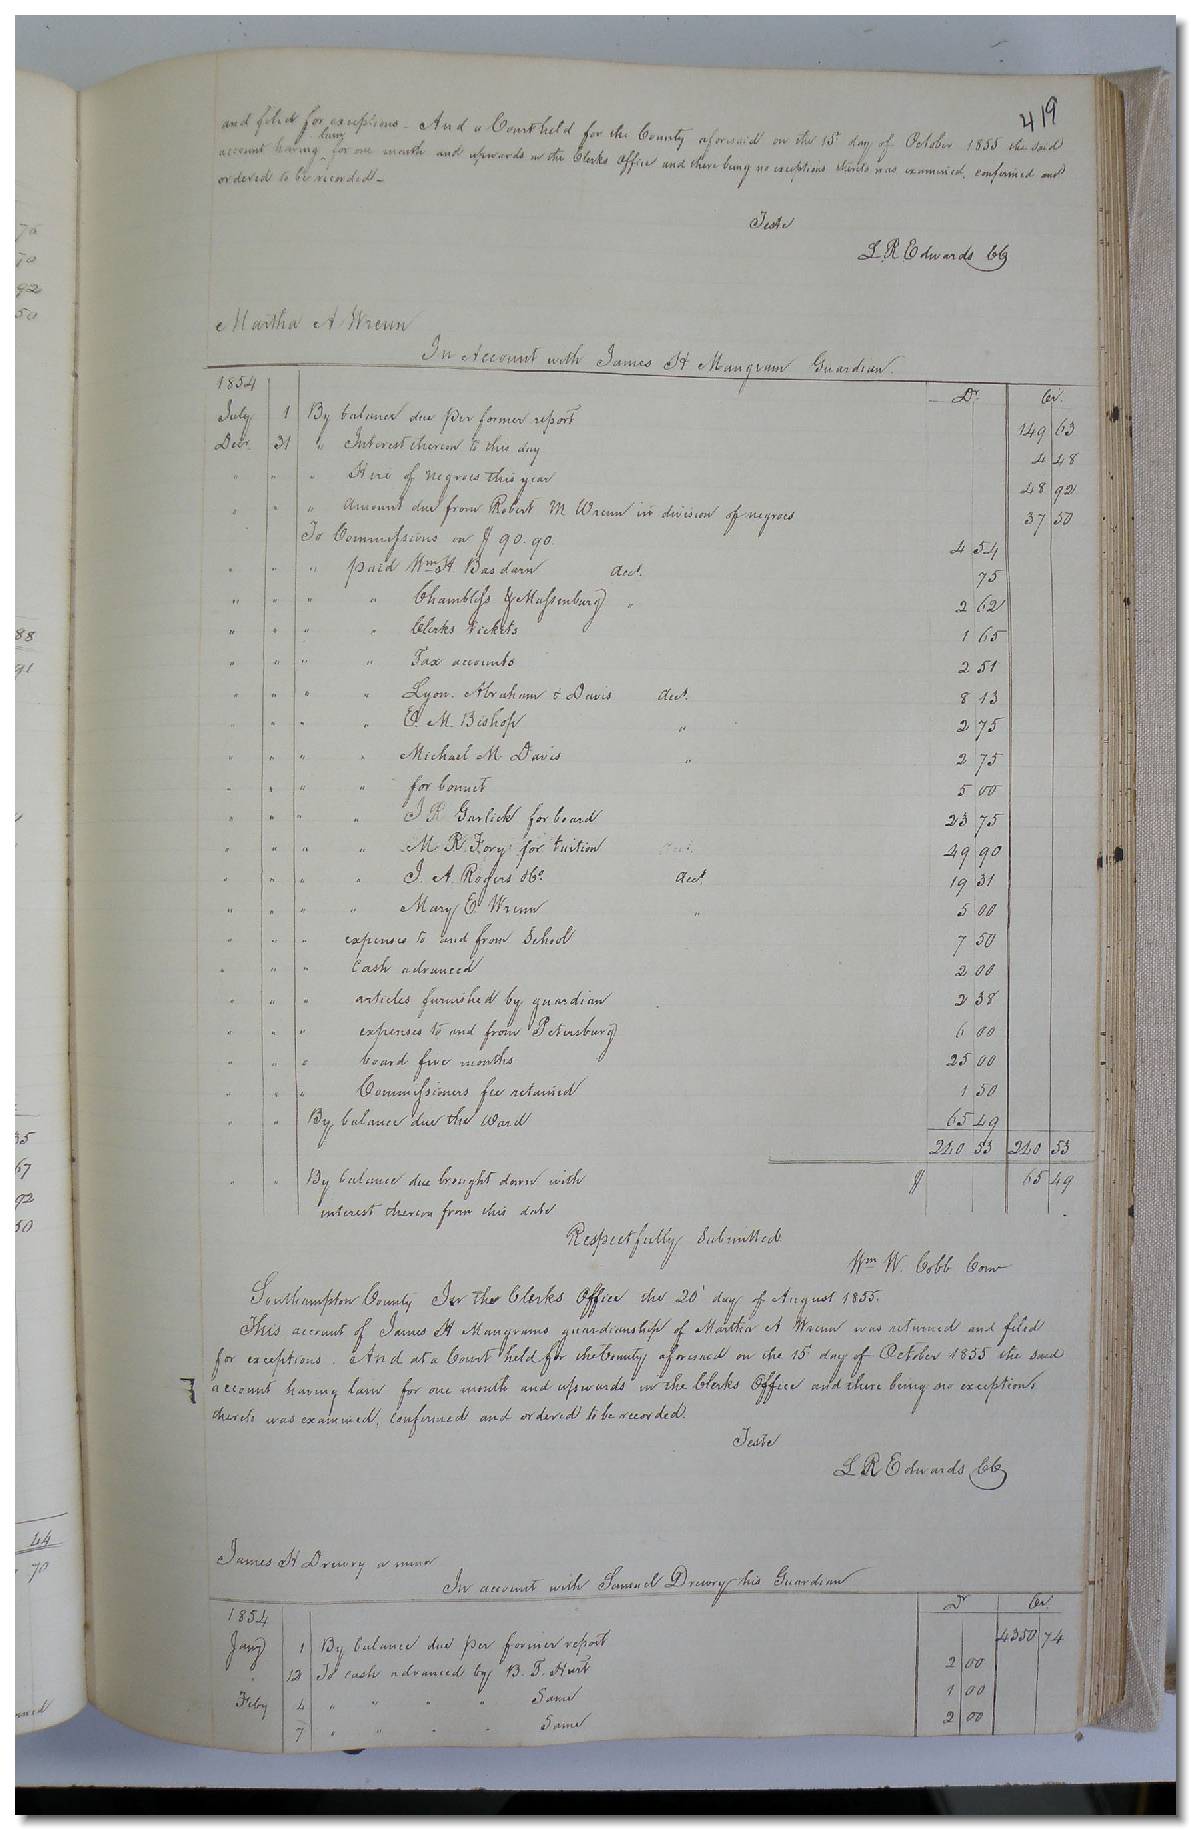 419
and filed for exceptions - And a Court held for the County aforesaid on the 15 day of October 1855 the said
account having lain for one month and upwards in the Clerks Office and there being no exceptions thereto was examined, confirmed and
ordered to be recorded -
Teste
L R Edwards CC
Martha A Wrenn
In Account with James H Mangram Guardian.
1854 Dr. Cr.
July 1 By balance due per former report 149 63
Decr. 31 " Interest thereon to this day 4 48
" " " Hire of negroes this year 48 92
" " " Amount due from Robert M Wrenn in division of negroes 37 50
To Commissions on $ 90.90. 4 54
" " " paid Wm H. Basdarn act. 75
" " " " Chambliss & Massenburg " 2 62
" " " " Clerks tickets 1 65
" " " " Tax accounts 2 51
" " " " Lyon. Abraham & Davis act. 8 13
" " " " E. M. Bishop " 2 75
" " " " Michael M Davis " 2 75
" " " " for bonnet 5 00
" " " " J R Garlick for board 23 75
" " " " M R. Fory for tuition act. 49 90
" " " " J. A. Rogers &Co. act. 19 31
" " " " Mary E. Wrenn " 5 00
" " " expenses to and from School 7 50
" " " Cash advanced 2 00
" " " articles furnished by guardian 2 38
" " " expenses to and from Petersburg 6 00
" " " board five months 25 00
" " " Commissioners fee retained 1 50
" " By balance due the Ward 65 49
240 53 240 53
" " By balance due brought down with $ 65 49
interest thereon from this date
Respectfully Submitted
Wm W. Cobb Com
Southampton County In the Clerks Office the 20 day of August 1855.
This account of James H Mangrams guardianship of Martha A Wrenn was returned and filed
for exceptions. And at a Court held for the County aforesaid on the 15 day of October 1855 the said
account having lain for one month and upwards in the Clerks Office and there being no exceptions
thereto was examined, confirmed and ordered to be recorded.
Teste
L R Edwards CC
James H Drewry a minor
In account with Samuel Drewry his Guardian
1854 Dr Cr.
Jany 1 By balance due per former report 4350 74
" 12 To cash advanced by B. T. Hurt 2 00
Feby 4 " " " " Same 1 00
7 " " " " Same 2 00